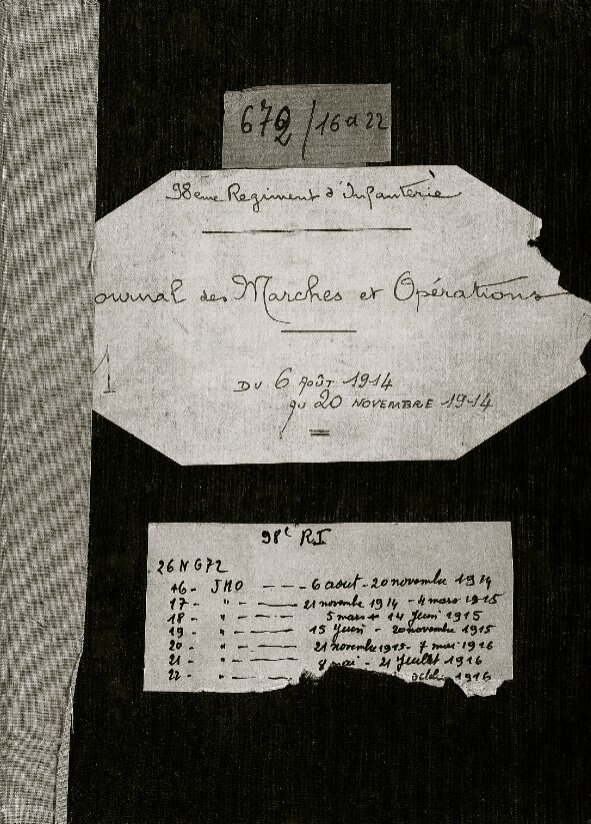 672/16 a 22
98ème Régiment d'Infanterie
ournal des Marches et Opérations
1
DU 6 AOÛT 1914
AU 20 NOVEMBRE 1914
98e RI
26 N 672
16 - JMO - 6 aout - 20 novembre 1914
17 - " - 21 novembre 1914 - 4 mars 1915
18 - " - 5 mars 14 Juin 1915
19 - " - 15 Juin - 20 novembre 1915
20 - " - 21 novembre 1915 - 7 mai 1916
21 - " - 8 mai - 21 Juillet 1916
22 - " - 1916